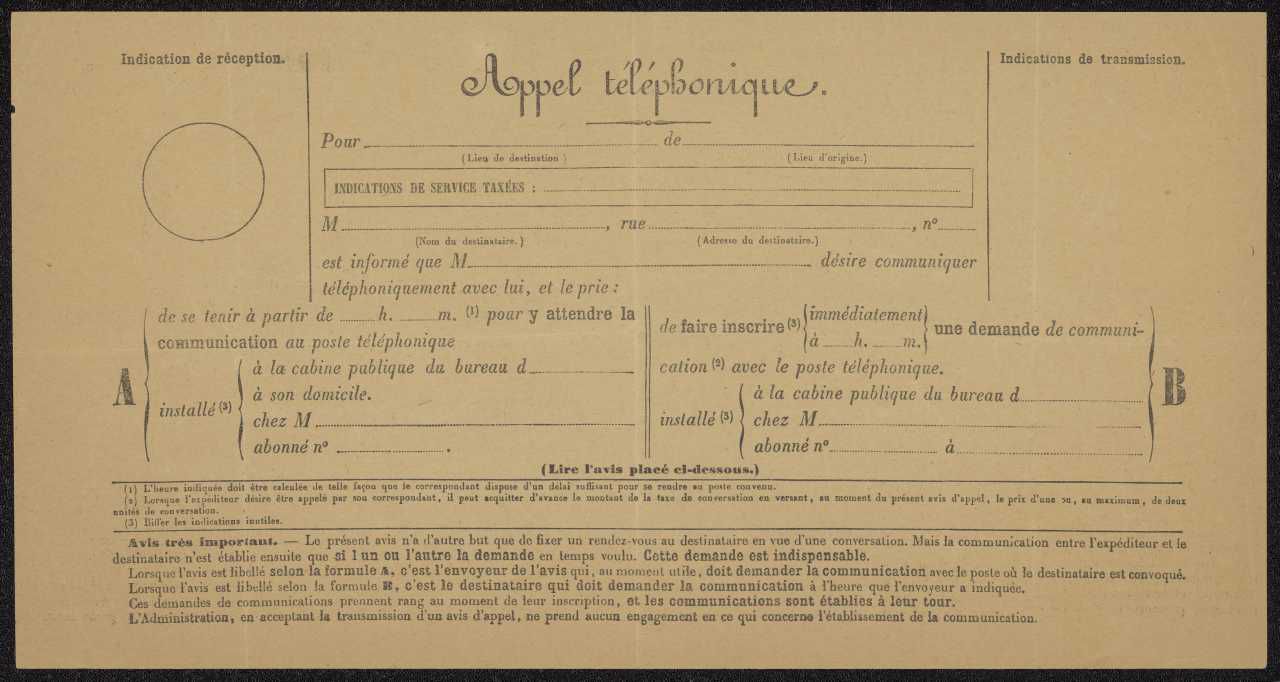 Indication de réception.
Appel téléphonique.
Indications de transmission.
Pour de
(Lieu de destination) (Lieu d'origine.)
INDICATIONS DE SERVICE TAXÉES :
M , rue , nº
(Nom du destinataire.) (Adresse du destinataire.)
est informé que M. désire communiquer
téléphoniquement avec lui, et le prie :
A
de se tenir à partir de h. m. (1) pour y attendre la
communication au poste téléphonique
installé (3)
à la cabine publique du bureau d
à son domicile.
chez M
abonné nº .
de faire inscrire (3) immédiatement une demande de communi-
à h. m.
cation (2) avec le poste téléphonique.
installé (3)
à la cabine publique du bureau d
chez M
abonné nº à
B
(Lire l'avis placé ci-dessous.)
(1) L'heure indiquée doit être calculée de telle façon que le correspondant dispose d'un délai suffisant pour se rendre au poste convenu.
(2) Lorsque l'expéditeur désire être appelé par son correspondant, il peut acquitter d'avance le montant de la taxe de conversation en versant, au moment du présent avis d'appel, le prix d'une ou, au maximum, de deux
unités de conversation.
(3) Biffer les indications inutiles.
Avis très important. — Le présent avis n'a d'autre but que de fixer un rendez-vous au destinataire en vue d'une conversation. Mais la communication entre l'expéditeur et le
destinataire n'est établie ensuite que si l'un ou l'autre la demande en temps voulu. Cette demande est indispensable.
Lorsque l'avis est libellé selon la formule A, c'est l'envoyeur de l'avis qui, au moment utile, doit demander la communication avec le poste où le destinataire est convoqué.
Lorsque l'avis est libellé selon la formule B, c'est le destinataire qui doit demander la communication à l'heure que l'envoyeur a indiquée.
Ces demandes de communications prennent rang au moment de leur inscription, et les communications sont établies à leur tour.
L'Administration, en acceptant la transmission d'un avis d'appel, ne prend aucun engagement en ce qui concerne l'établissement de la communication.